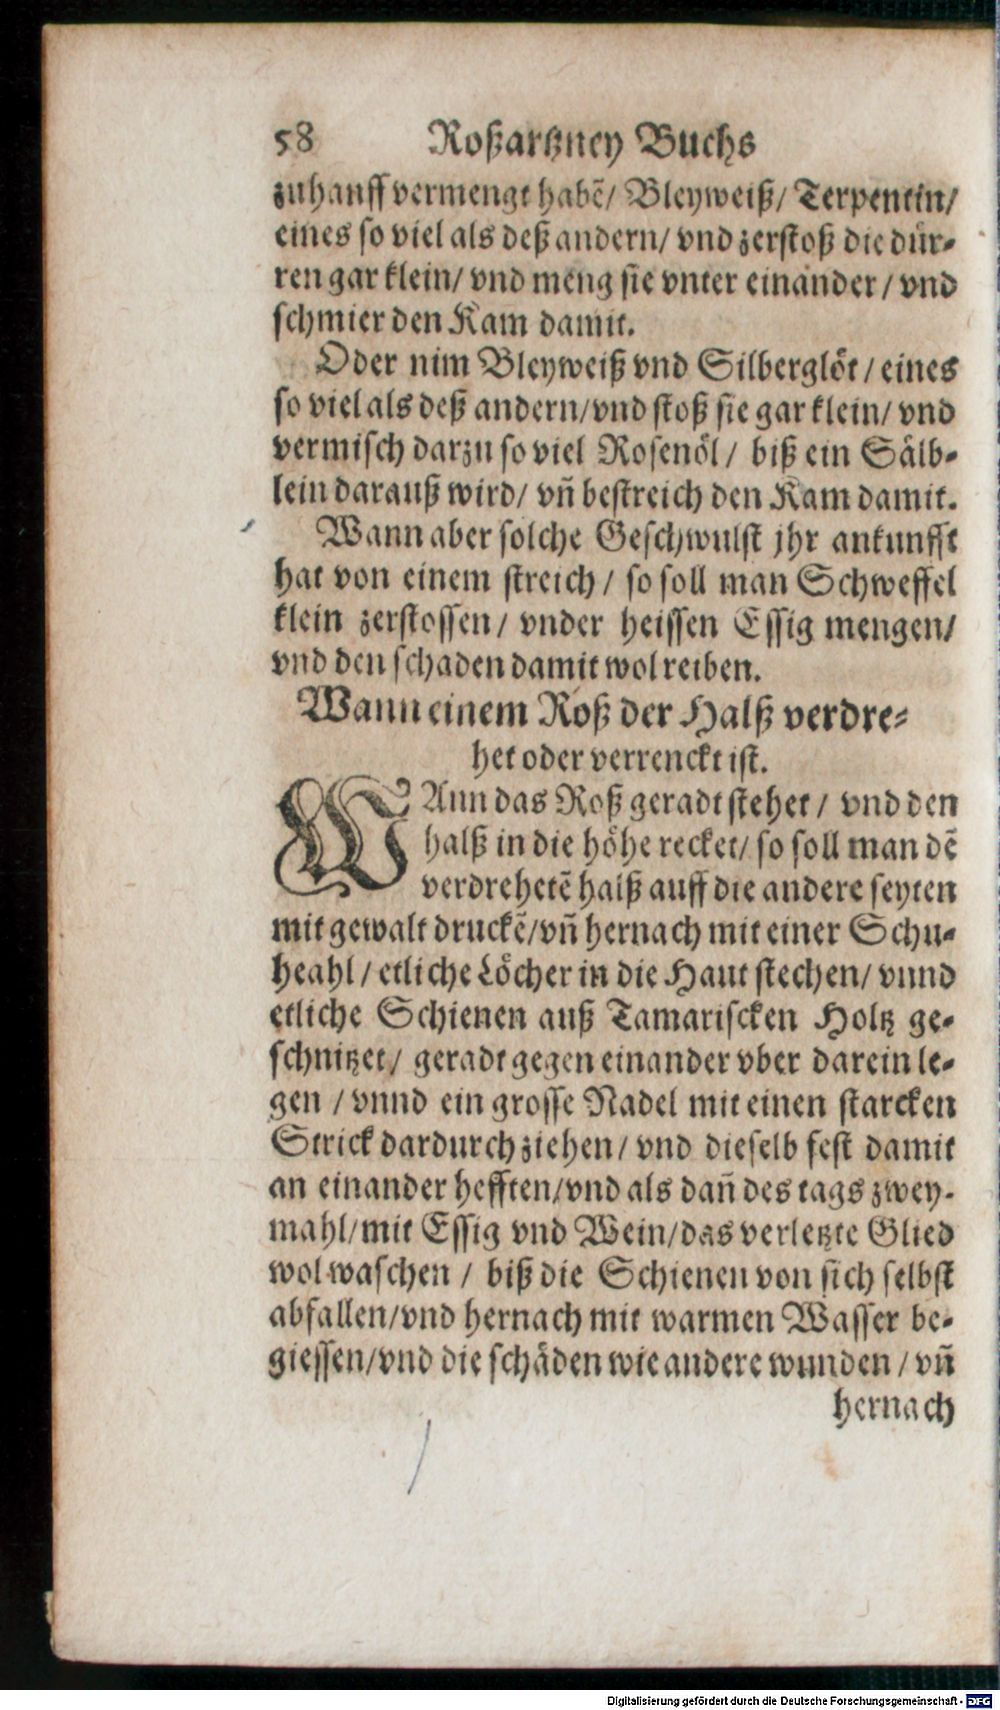 58 Roßartzney Buchs
zuhauff vermengt habẽ/ Bleyweiß/ Terpentin/
eines so viel als deß andern/ vnd zerstoß die dür-
ren gar klein/ vnd meng sie vnter einander/ vnd
schmier den Kam damit.
Oder nim Bleyweiß vnd Silberglöt/ eines
so viel als deß andern/vnd stoß sie gar klein/ vnd
vermisch darzu so viel Rosenöl/ biß ein Sälb-
lein darauß wird/ vñ bestreich den Kam damit.
Wann aber solche Geschwulst jhr ankunfft
hat von einem streich/ so soll man Schweffel
klein zerstossen/ vnder heissen Essig mengen/
vnd den schaden damit wol reiben.
Wann einem Roß der Halß verdre-
het oder verrenckt ist.
WAnn das Roß geradt stehet/ vnd den
halß in die höhe recket/ so soll man dẽ
verdrehetẽ halß auff die andere seyten
mit gewalt druckẽ/vñ hernach mit einer Schu-
heahl/ etliche Löcher in die Haut stechen/ vnnd
etliche Schienen auß Tamariscken Holtz ge-
schnitzet/ geradt gegen einander vber darein le-
gen/ vnnd ein grosse Nadel mit einen starcken
Strick dardurch ziehen/ vnd dieselb fest damit
an einander hefften/vnd als dañ des tags zwey-
mahl/mit Essig vnd Wein/das verletzte Glied
wol waschen/ biß die Schienen von sich selbst
abfallen/vnd hernach mit warmen Wasser be-
giessen/vnd die schäden wie andere wunden/ vñ
hernach
Digitalisierung gefördert durch die Deutsche Forschungsgemeinschaft - DFG